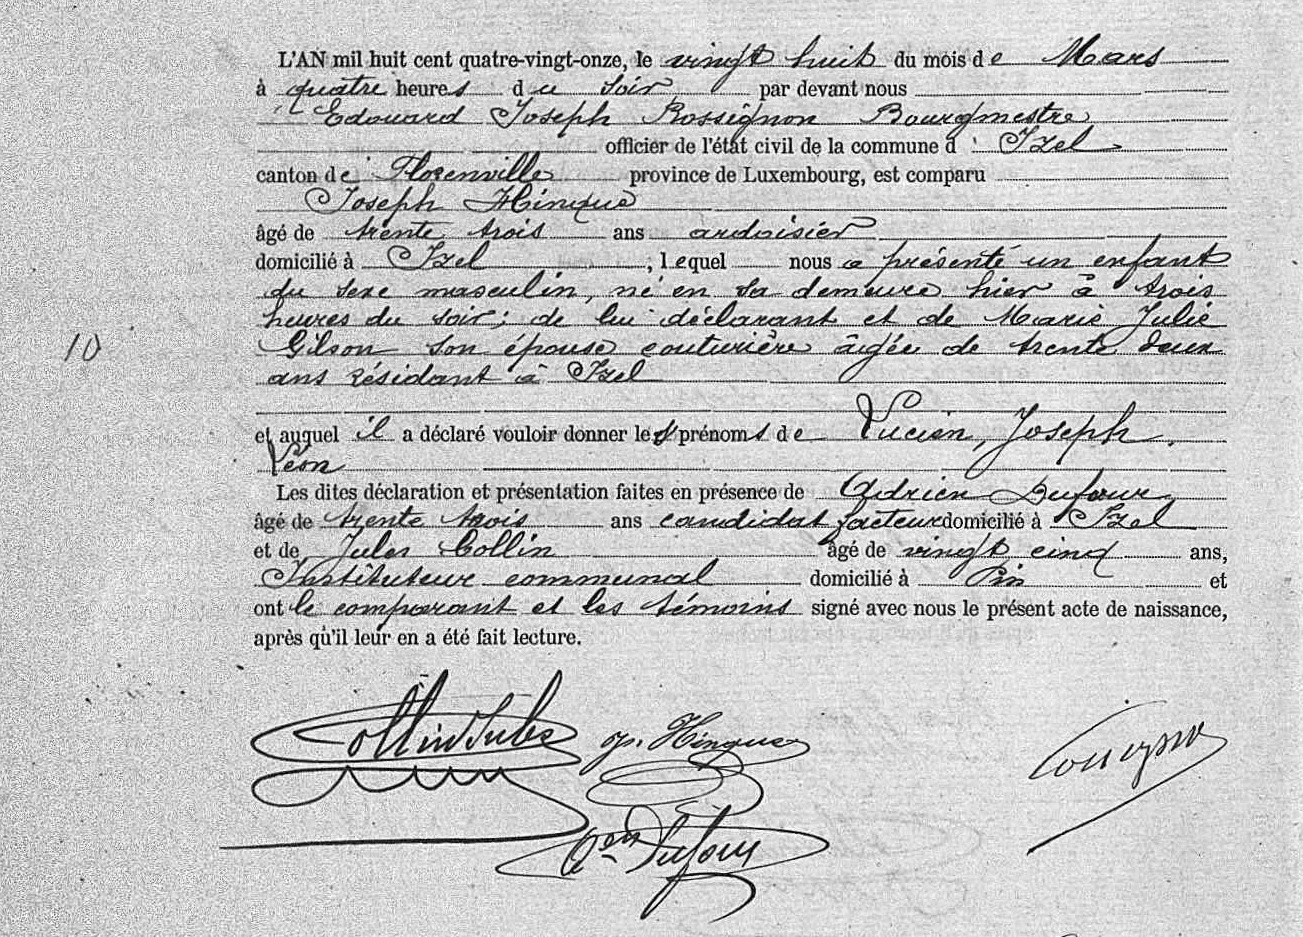 L'AN mil huit cent quatre-vingt-onze, le vingt huit du mois de Mars
à quatre heures du soir par devant nous
Edouard Joseph Rossignon Bourgmestre
officier de l'état civil de la commune d' Izel
canton de Florenville province de Luxembourg, est comparu
Joseph Hinque
âgé de trente trois ans ardoisier
domicilié à Izel, lequel nous a présenté un enfant
du sexe masculin, né en sa demeure hier à trois
heures du soir; de lui déclarant et de Marie Julie
Gilson son épouse couturière âgée de trente deux
ans résidant à Izel
10
et auquel il a déclaré vouloir donner les prénoms de Lucien, Joseph,
Léon
Les dites déclaration et présentation faites en présence de Adrien Dufour,
âgé de trente trois ans candidat facteur domicilié à Izel
et de Jules Collin âgé de vingt cinq ans,
Instituteur communal domicilié à Pin et
ont le comparant et les témoins signé avec nous le présent acte de naissance,
après qu'il leur en a été fait lecture.
Collin Jules
Hinque
Dufour